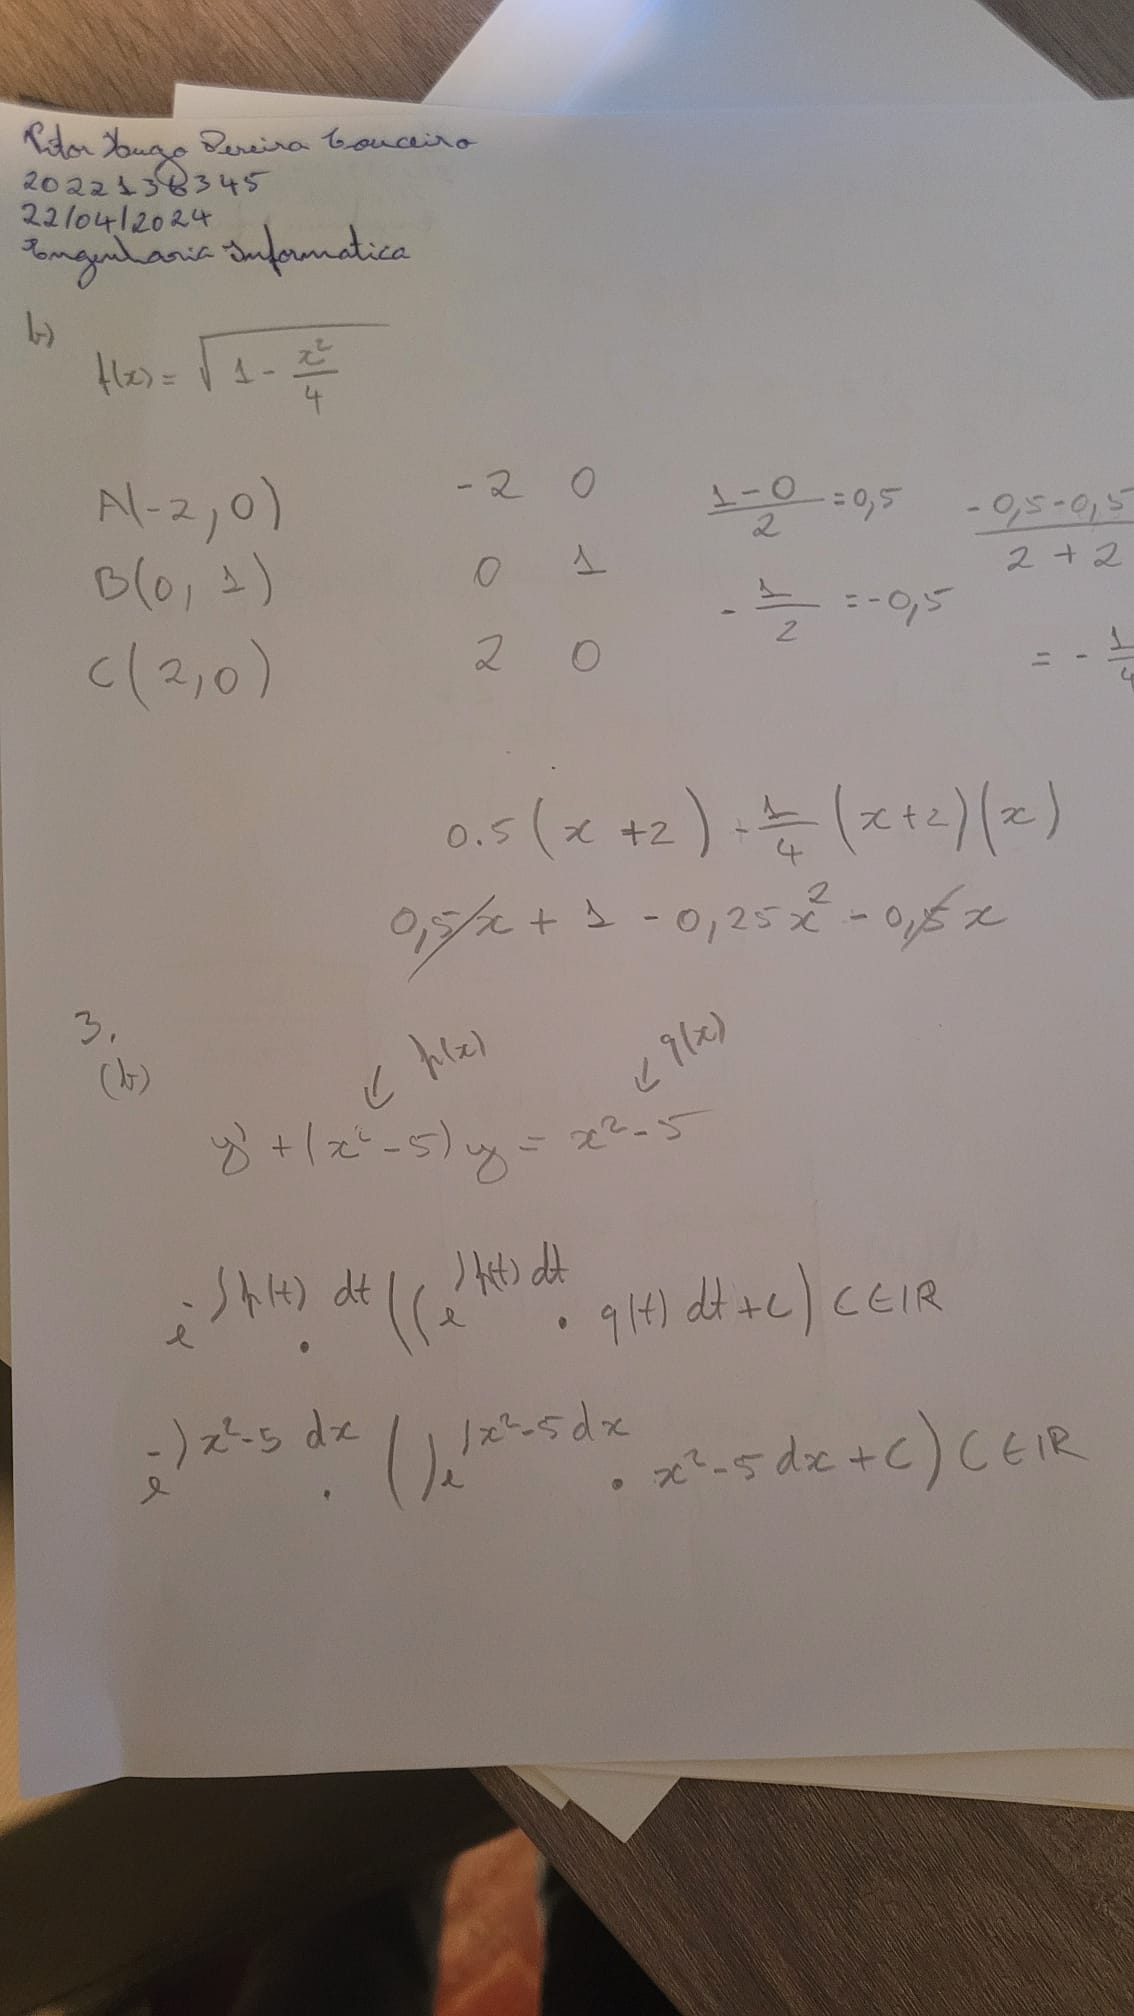 Vitor Hugo Pereira Couceiro
2022138345
22/04/2024
Engenharia Informatica
b)
f(x) = √(1 - x²/4)
A(-2,0)    -2  0    (1-0)/2 = 0,5    (-0,5-0,5)/(2+2)
B(0,1)    0  1    -1/2 = -0,5
C(2,0)    2  0    = -1/4
0.5(x+2) - 1/4 (x+2)(x)
0,5x + 1 - 0,25x² - 0,5x
3.
(b)
↙ p(x)    ↙ q(x)
y' + (x²-5)y = x²-5
e^(-∫p(t) dt) · (∫e^(∫p(t) dt) · q(t) dt + C) C∈IR
e^(-∫x²-5 dx) · (∫e^(∫x²-5 dx) · x²-5 dx + C) C∈IR